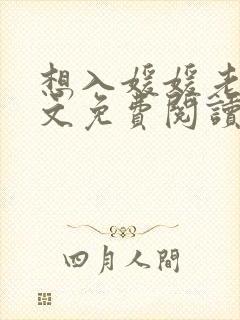 想入媛媛老
文免費閱讀
四月人間